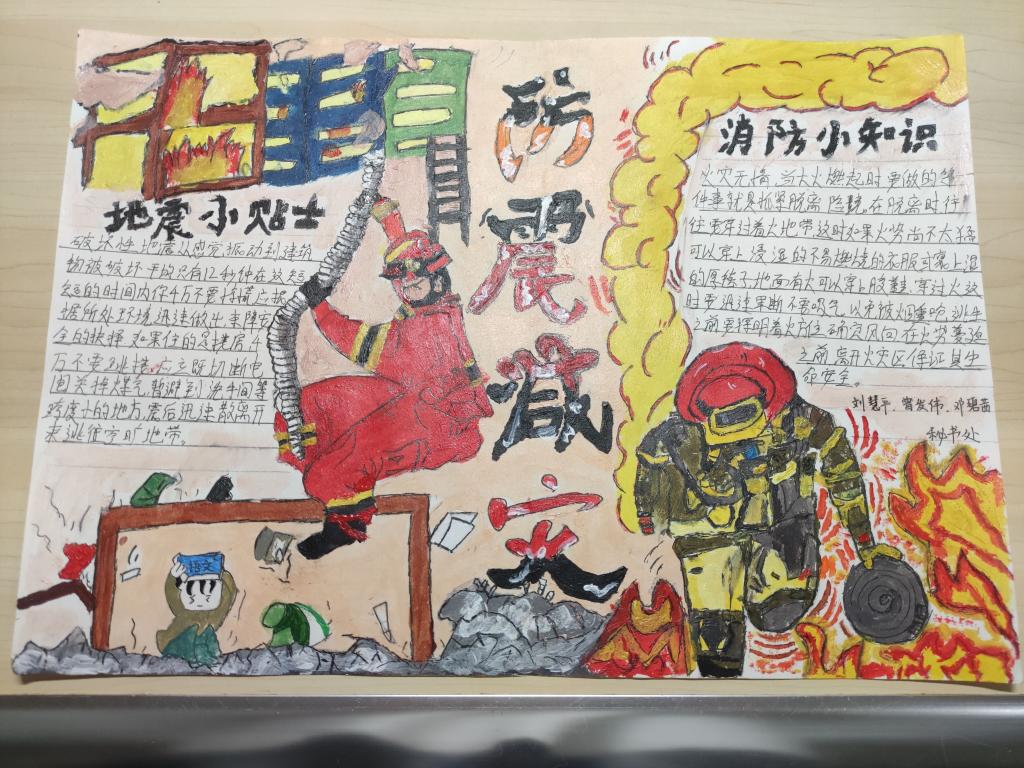 防震减灾
地震小贴士
破坏性地震从感觉振动到建筑
物被破坏平均只有12秒钟在这短
短的时间内你千万不要惊慌应根
据所处环境迅速做出来障安
全的抉择如果住的是楼房千
万不要跳楼 立既切断电
闸关掉煤气暂避到洗手间等
跨度小的地方震后迅速散离开
来跳往空旷地带。
语文
消防小知识
火灾无情当大火燃起时要做的第
件事就是抓紧脱离险境在脱离时往
往要穿过着火地带这时如果火势尚不太猛
可以穿上浸湿的不易燃烧的衣服或裹上湿
的 地面有火可以穿上胶鞋穿过火这
时要迅速果断不要吸气以来被烟熏呛
之前要择明着火方位确定风向在火势蔓延
之前离开火灾区保证其生
命安全。
刘慧平、曾发伟、邓碧茜
秘书处